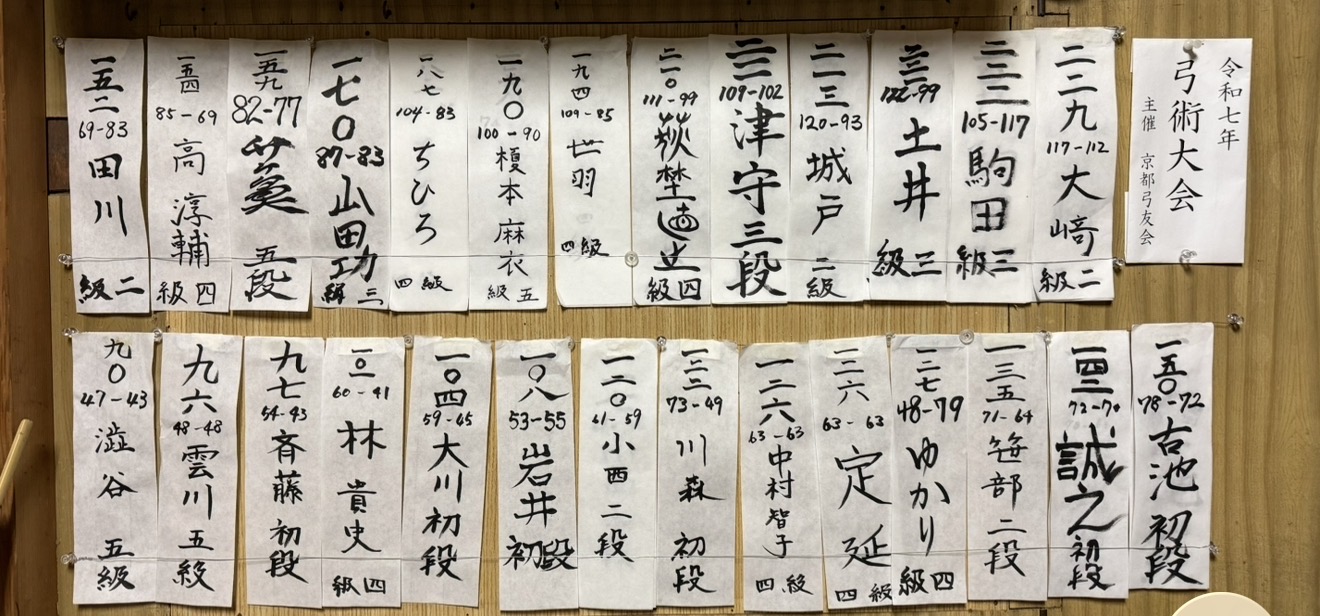 令和七年
弓術大会
主催 京都弓友会
二二九
117-112
大﨑
二級
二二二
105-117
駒田
三級
二二一
122-99
土井
三級
二一三
120-93
城戸
二級
二一一
109-102
津守三段
二一〇
111-99
荻埜
四級
一九四
109-85
世羽
四級
一九〇
100-90
榎本麻衣
五級
一八七
104-83
ちひろ
四級
一七〇
87-83
山田功
三級
一五九
82-77
葵 五段
一五四
85-69
高 淳輔
四級
一五二
69-83
田川
二級
一五〇
78-72
古池 初段
一四二
72-70
誠之 初段
一三五
71-64
笹部 二段
一二七
48-79
ゆかり
四級
一二六
63-63
定延
四級
一二六
63-63
中村智子
四級
一二二
73-49
川森 初段
一二〇
61-59
小西 二段
一〇八
53-55
岩井 初段
一〇四
59-45
大川初段
一〇一
60-41
林 貴史
四級
九七
54-43
斉藤初段
九六
48-48
雲川 五級
九〇
47-43
澁谷 五級